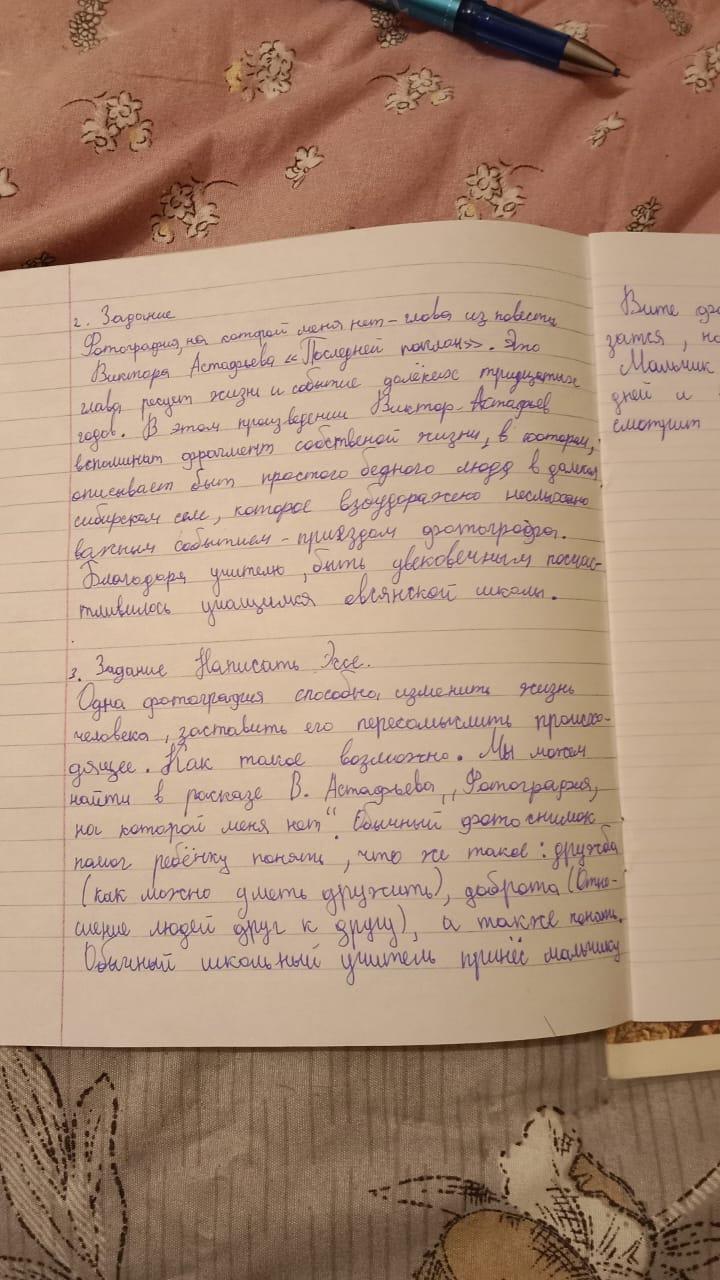 2. Задание
Фотография, на которой меня нет – глава из повести
Виктора Астафьева «Последней поклон». Это
глава рисует жизни и событие далёких тридцатых
годов. В этом произведении Виктор Астафьев
вспоминат фрагмент собственой жизни, в котором,
описывает быт простого бедного люда в далком
сибирском селе, которое взбударажено неслыхано
важным событием – приездом фотографа.
Благодаря учителю, быть увековечным посчас-
тливилось учащимся овсянской школы.
3. Задание Написать Эссе.
Одна фотография способна, изменить жизнь
человека, заставить его пересомыслить происхо-
дящее. Как такое возможно. Мы можем
найти в расказе В. Астафьева ,,Фотография,
на которой меня нет". Обычный фотоснимок
помог ребёнку понять, что же такое: дружба
(как можно уметь дружить), доброта (Отно-
шение людей друг к другу), а также понять.
Обычный школьный учитель принёс мальчику
Вите
затся, но
Мальчик
дней и
смотрит